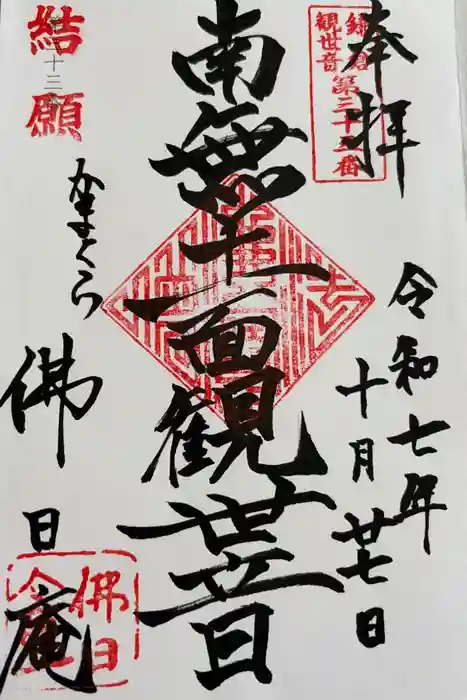 奉拝
鎌倉
観世音
第三十三番
令和七年
十月廿七日
南無十一面観世音
結願
十三
かまくら
佛日庵
佛日